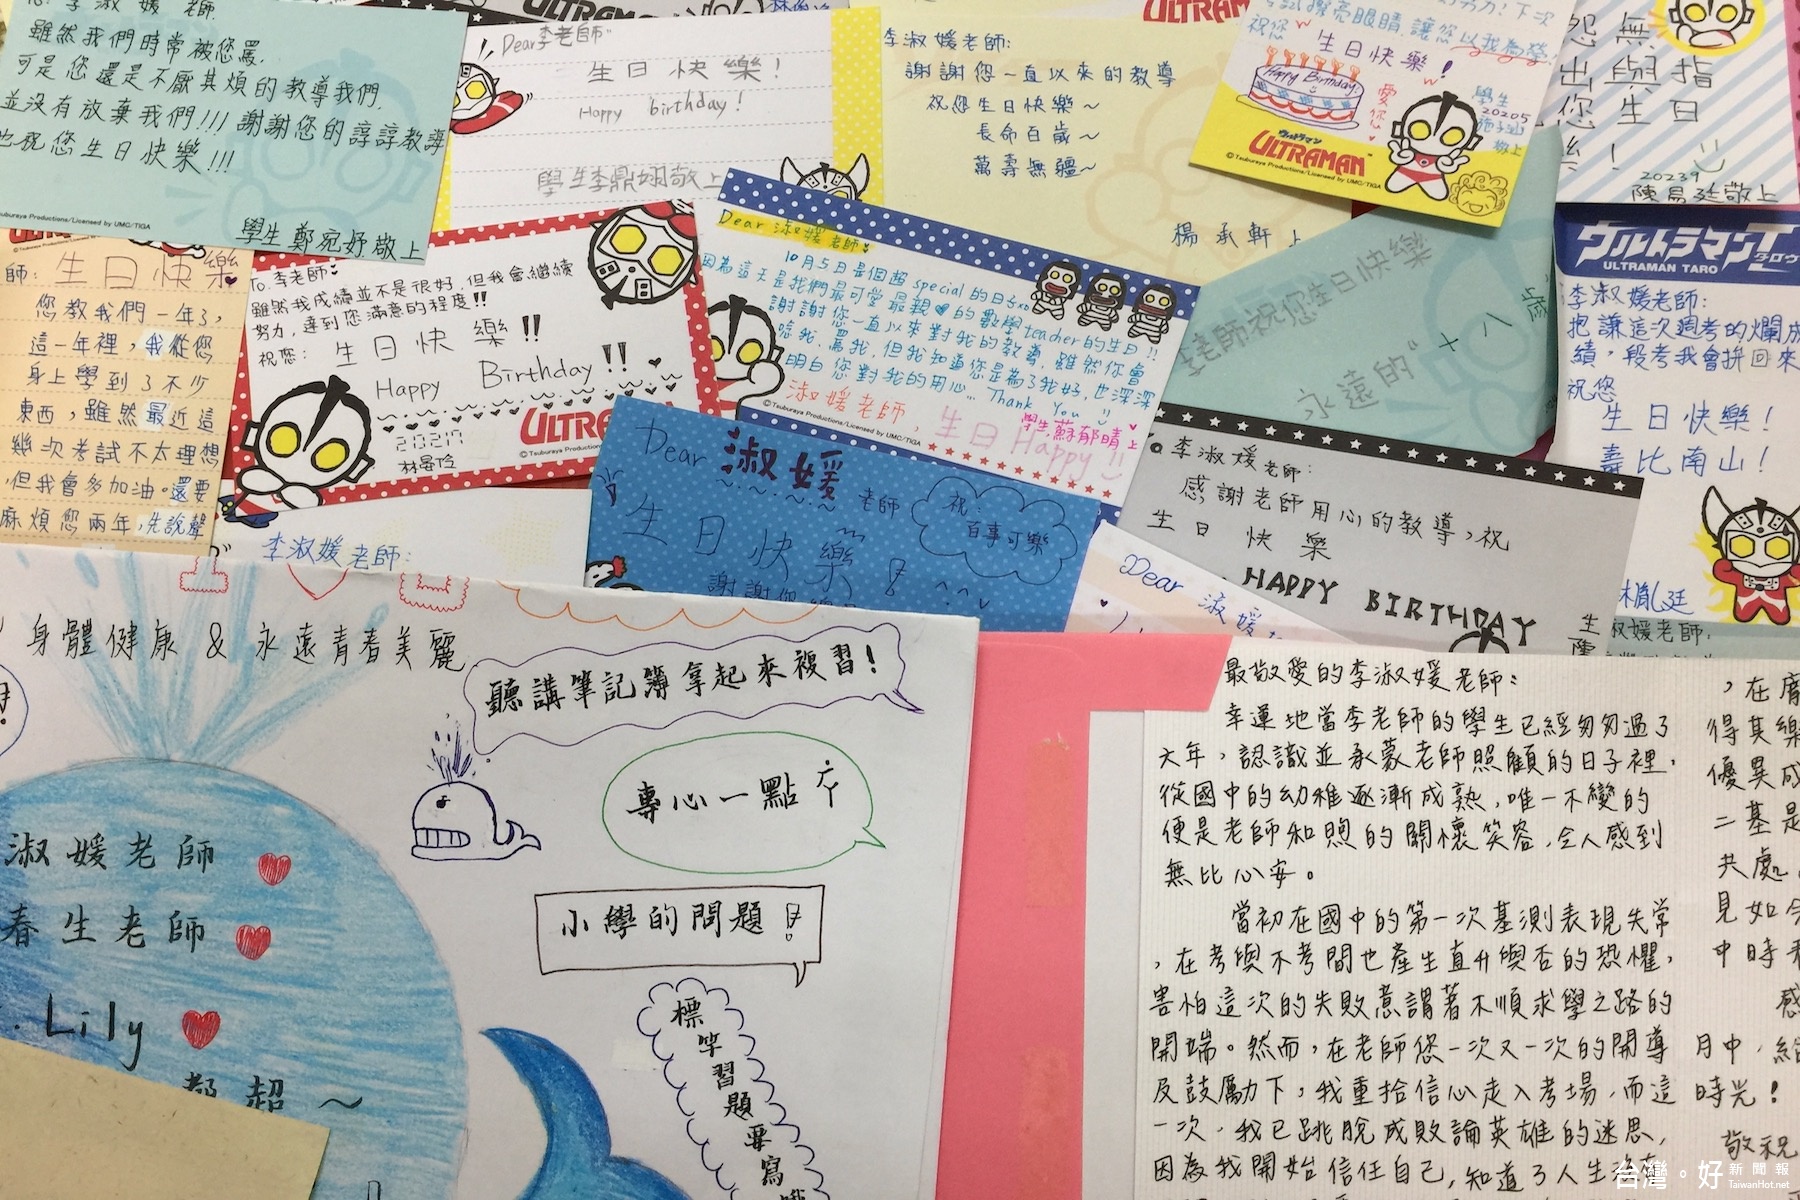 雖然我們時常被您罵,
可是您還是不厭其煩的教導我們,
並沒有放棄我們!!! 謝謝您的諄諄教誨
也祝您生日快樂!!!
學生 鄭宛妤敬上
Dear李老師"
生日快樂!
Happy birthday!
李淑媛老師:
謝謝您一直以來的教導
祝您生日快樂~
長命百歲~
萬壽無疆~
楊承軒上
祝您
生日快樂!
Happy Birthday
愛您
學生
20205
敬上
ウルトラマン
ULTRAMAN
©Tsuburaya Productions/Licensed by UMC/TIGA
怨無
出與指
您生日
20239
陳易廷敬上
師: 生日快樂
您教我們一年了,
這一年裡,我從您
身上學到了不少
東西,雖然最近這
幾次考試不太理想
但我會多加油。還要
麻煩您兩年,先說聲
To.李老師
雖然我成績並不是很好,但我會繼續
努力,達到您滿意的程度!!
祝您: 生日快樂!!
Happy Birthday!!
20217
林晏伶
ULTRAMAN
©Tsuburaya Productions/Licensed by UMC/TIGA
Dear 淑媛老師
10月5日是個超special的日子xD
因為這天是我們最可愛最親♥的數學teacher的生日!!
謝謝您一直以來對我的教導,雖然您會
唸我、罵我,但我知道您是為了我好,也深深
明白您對我的用心... Thank You
淑媛老師,生日Happy!!
學生.蘇郁晴上
©Tsuburaya Productions/Licensed by UMC/TIGA
李老師祝您生日快樂
永遠的"十八歲
ウルトラマンT
タロウ
ULTRAMAN TARO
李淑媛老師:
抱謙這次週考的爛成
績,段考我會拼回來
祝您
生日快樂!
壽比南山!
Dear 淑媛老師
生日快樂!
祝:
百事可樂
To李淑媛老師:
感謝老師用心的教導,祝
生日快樂
HAPPY BIRTHDAY
李淑媛老師:
Dear 淑媛
淑媛老師:
身體健康 & 永遠青春美麗
聽講筆記簿拿起來複習!
專心一點ㄚˊ
小學的問題!
標竿習題要寫
淑媛老師
春生老師
Lily
都超~
最敬愛的李淑媛老師:
幸運地當李老師的學生已經匆匆過了
大年,認識並承蒙老師照顧的日子裡,
從國中的幼稚逐漸成熟,唯一不變的
便是老師和煦的關懷笑容,令人感到
無比心安。
當初在國中的第一次基測表現失常
,在考與不考間也產生直升與否的恐懼,
害怕這次的失敗意謂著不順求學之路的
開端。然而,在老師您一次又一次的開導
及鼓勵下,我重拾信心走入考場,而這
一次,我已跳脫成敗論英雄的迷思,
因為我開始信任自己,知道了人生
,在
得其樂
優異成
二基是
共處
見如今
中時
感
月中,給
時光!
敬祝
台灣。好 新聞報
TaiwanHot.net